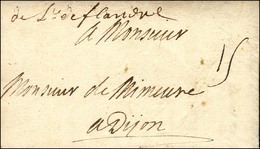 de L'. de flandre
a Monsieur
15
Monsieur de Mimeure
a Dijon